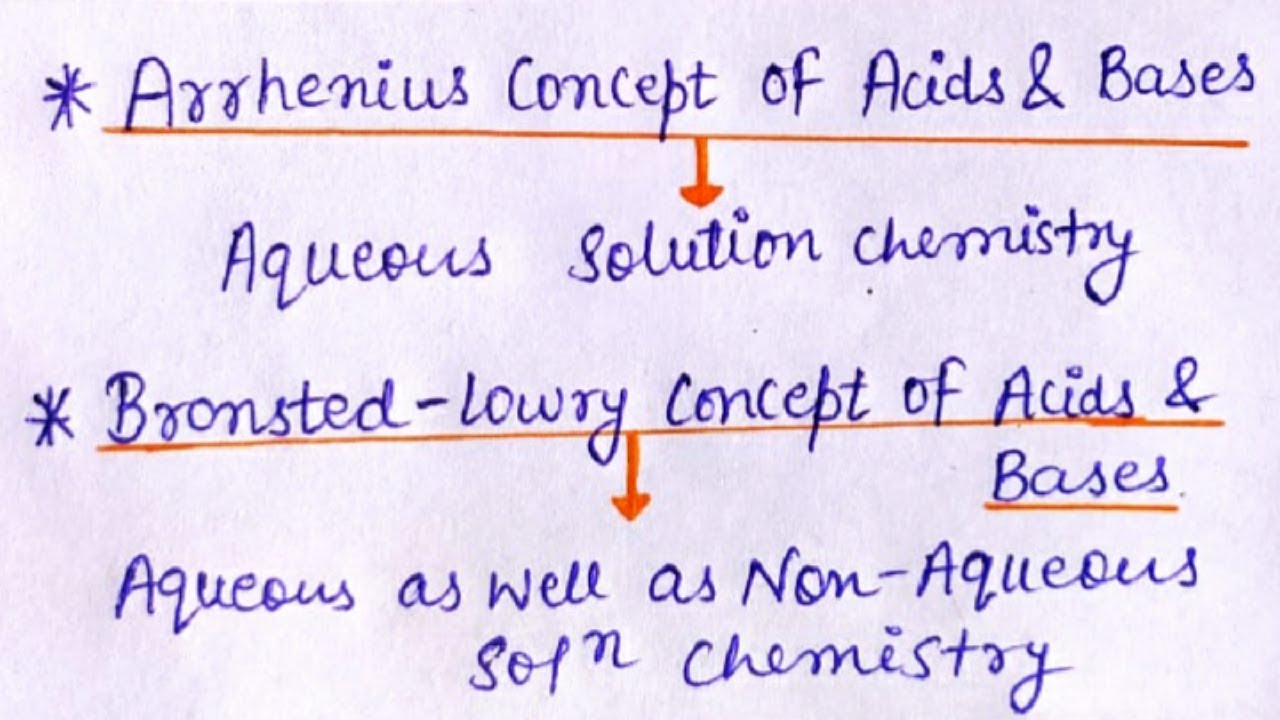 * Arrhenius Concept of Acids & Bases
Aqueous Solution Chemistry
* Bronsted-Lowry Concept of Acids &
Bases.
Aqueous as well as Non-Aqueous
Solⁿ Chemistry